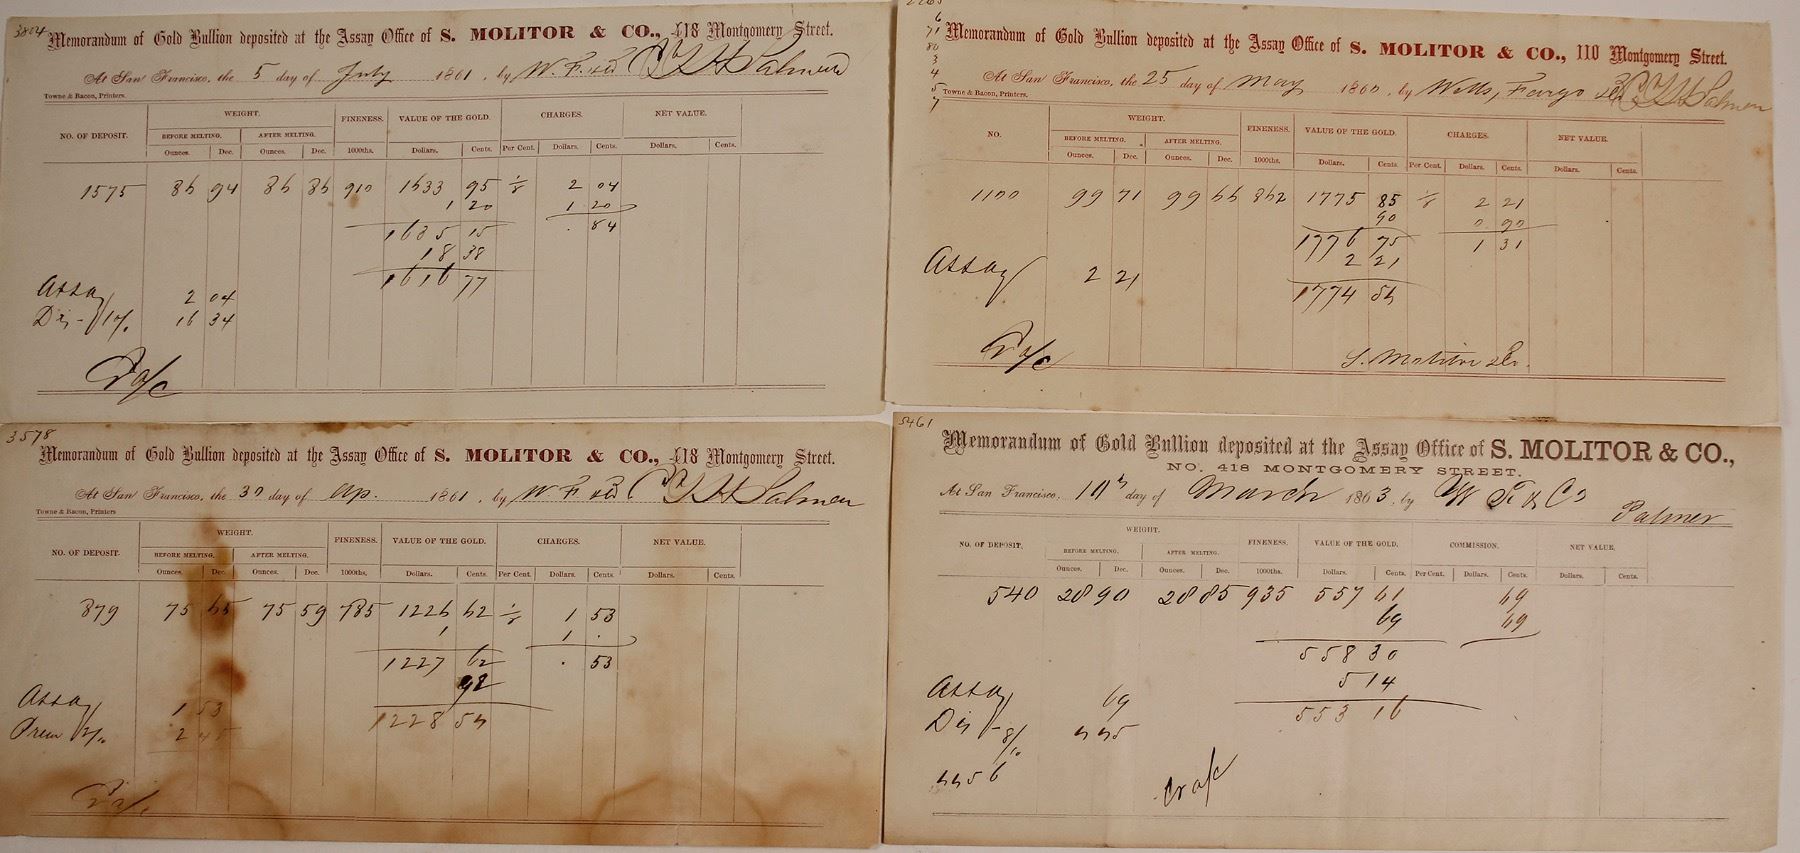 3804
Memorandum of Gold Bullion deposited at the Assay Office of S. MOLITOR & CO., 418 Montgomery Street.
At San Francisco, the 5 day of July 1861, by W. F. & Co
Towne & Bacon, Printers.
NO. OF DEPOSIT. WEIGHT. FINENESS. VALUE OF THE GOLD. CHARGES. NET VALUE.
BEFORE MELTING. AFTER MELTING.
Ounces. Dec. Ounces. Dec. 1000ths. Dollars. Cents. Per Cent. Dollars. Cents. Dollars. Cents.
1575 86 94 86 86 910 1633 95 1/8 2 04
1 20 1 20
1635 15 . 84
18 38
1616 77
Assay 2 04
Dis - 16 34
Memorandum of Gold Bullion deposited at the Assay Office of S. MOLITOR & CO., 110 Montgomery Street.
At San Francisco, the 25 day of May 1860, by Wells, Fargo & Co
Towne & Bacon, Printers.
NO. WEIGHT. FINENESS. VALUE OF THE GOLD. CHARGES. NET VALUE.
BEFORE MELTING. AFTER MELTING.
Ounces. Dec. Ounces. Dec. 1000ths. Dollars. Cents. Per Cent. Dollars. Cents. Dollars. Cents.
1100 99 71 99 66 862 1775 85 1/8 2 21
90 0 90
1776 75 1 31
2 21
1774 54
Assay 2 21
S. Molitor & Co.
3578
Memorandum of Gold Bullion deposited at the Assay Office of S. MOLITOR & CO., 418 Montgomery Street.
At San Francisco, the 30 day of Ap. 1861, by W F & Co
Towne & Bacon, Printers
NO. OF DEPOSIT. WEIGHT. FINENESS. VALUE OF THE GOLD. CHARGES. NET VALUE.
BEFORE MELTING. AFTER MELTING.
Ounces. Dec. Ounces. Dec. 1000ths. Dollars. Cents. Per Cent. Dollars. Cents. Dollars. Cents.
879 75 65 75 59 785 1226 62 1/8 1 53
1 1 .
1227 62 . 53
92
1228 54
Assay 1 53
Prem 2 45
5461
Memorandum of Gold Bullion deposited at the Assay Office of S. MOLITOR & CO.,
NO. 418 MONTGOMERY STREET.
At San Francisco, 10th day of March 1863, by W F & Co
Palmer
NO. OF DEPOSIT. WEIGHT. FINENESS. VALUE OF THE GOLD. COMMISSION. NET VALUE.
BEFORE MELTING. AFTER MELTING.
Ounces. Dec. Ounces. Dec. 1000ths. Dollars. Cents. Per Cent. Dollars. Cents. Dollars. Cents.
540 28 90 28 85 935 557 61 69
69 69
558 30
5 14
553 16
Assay 69
Dis - 8/10 4 45